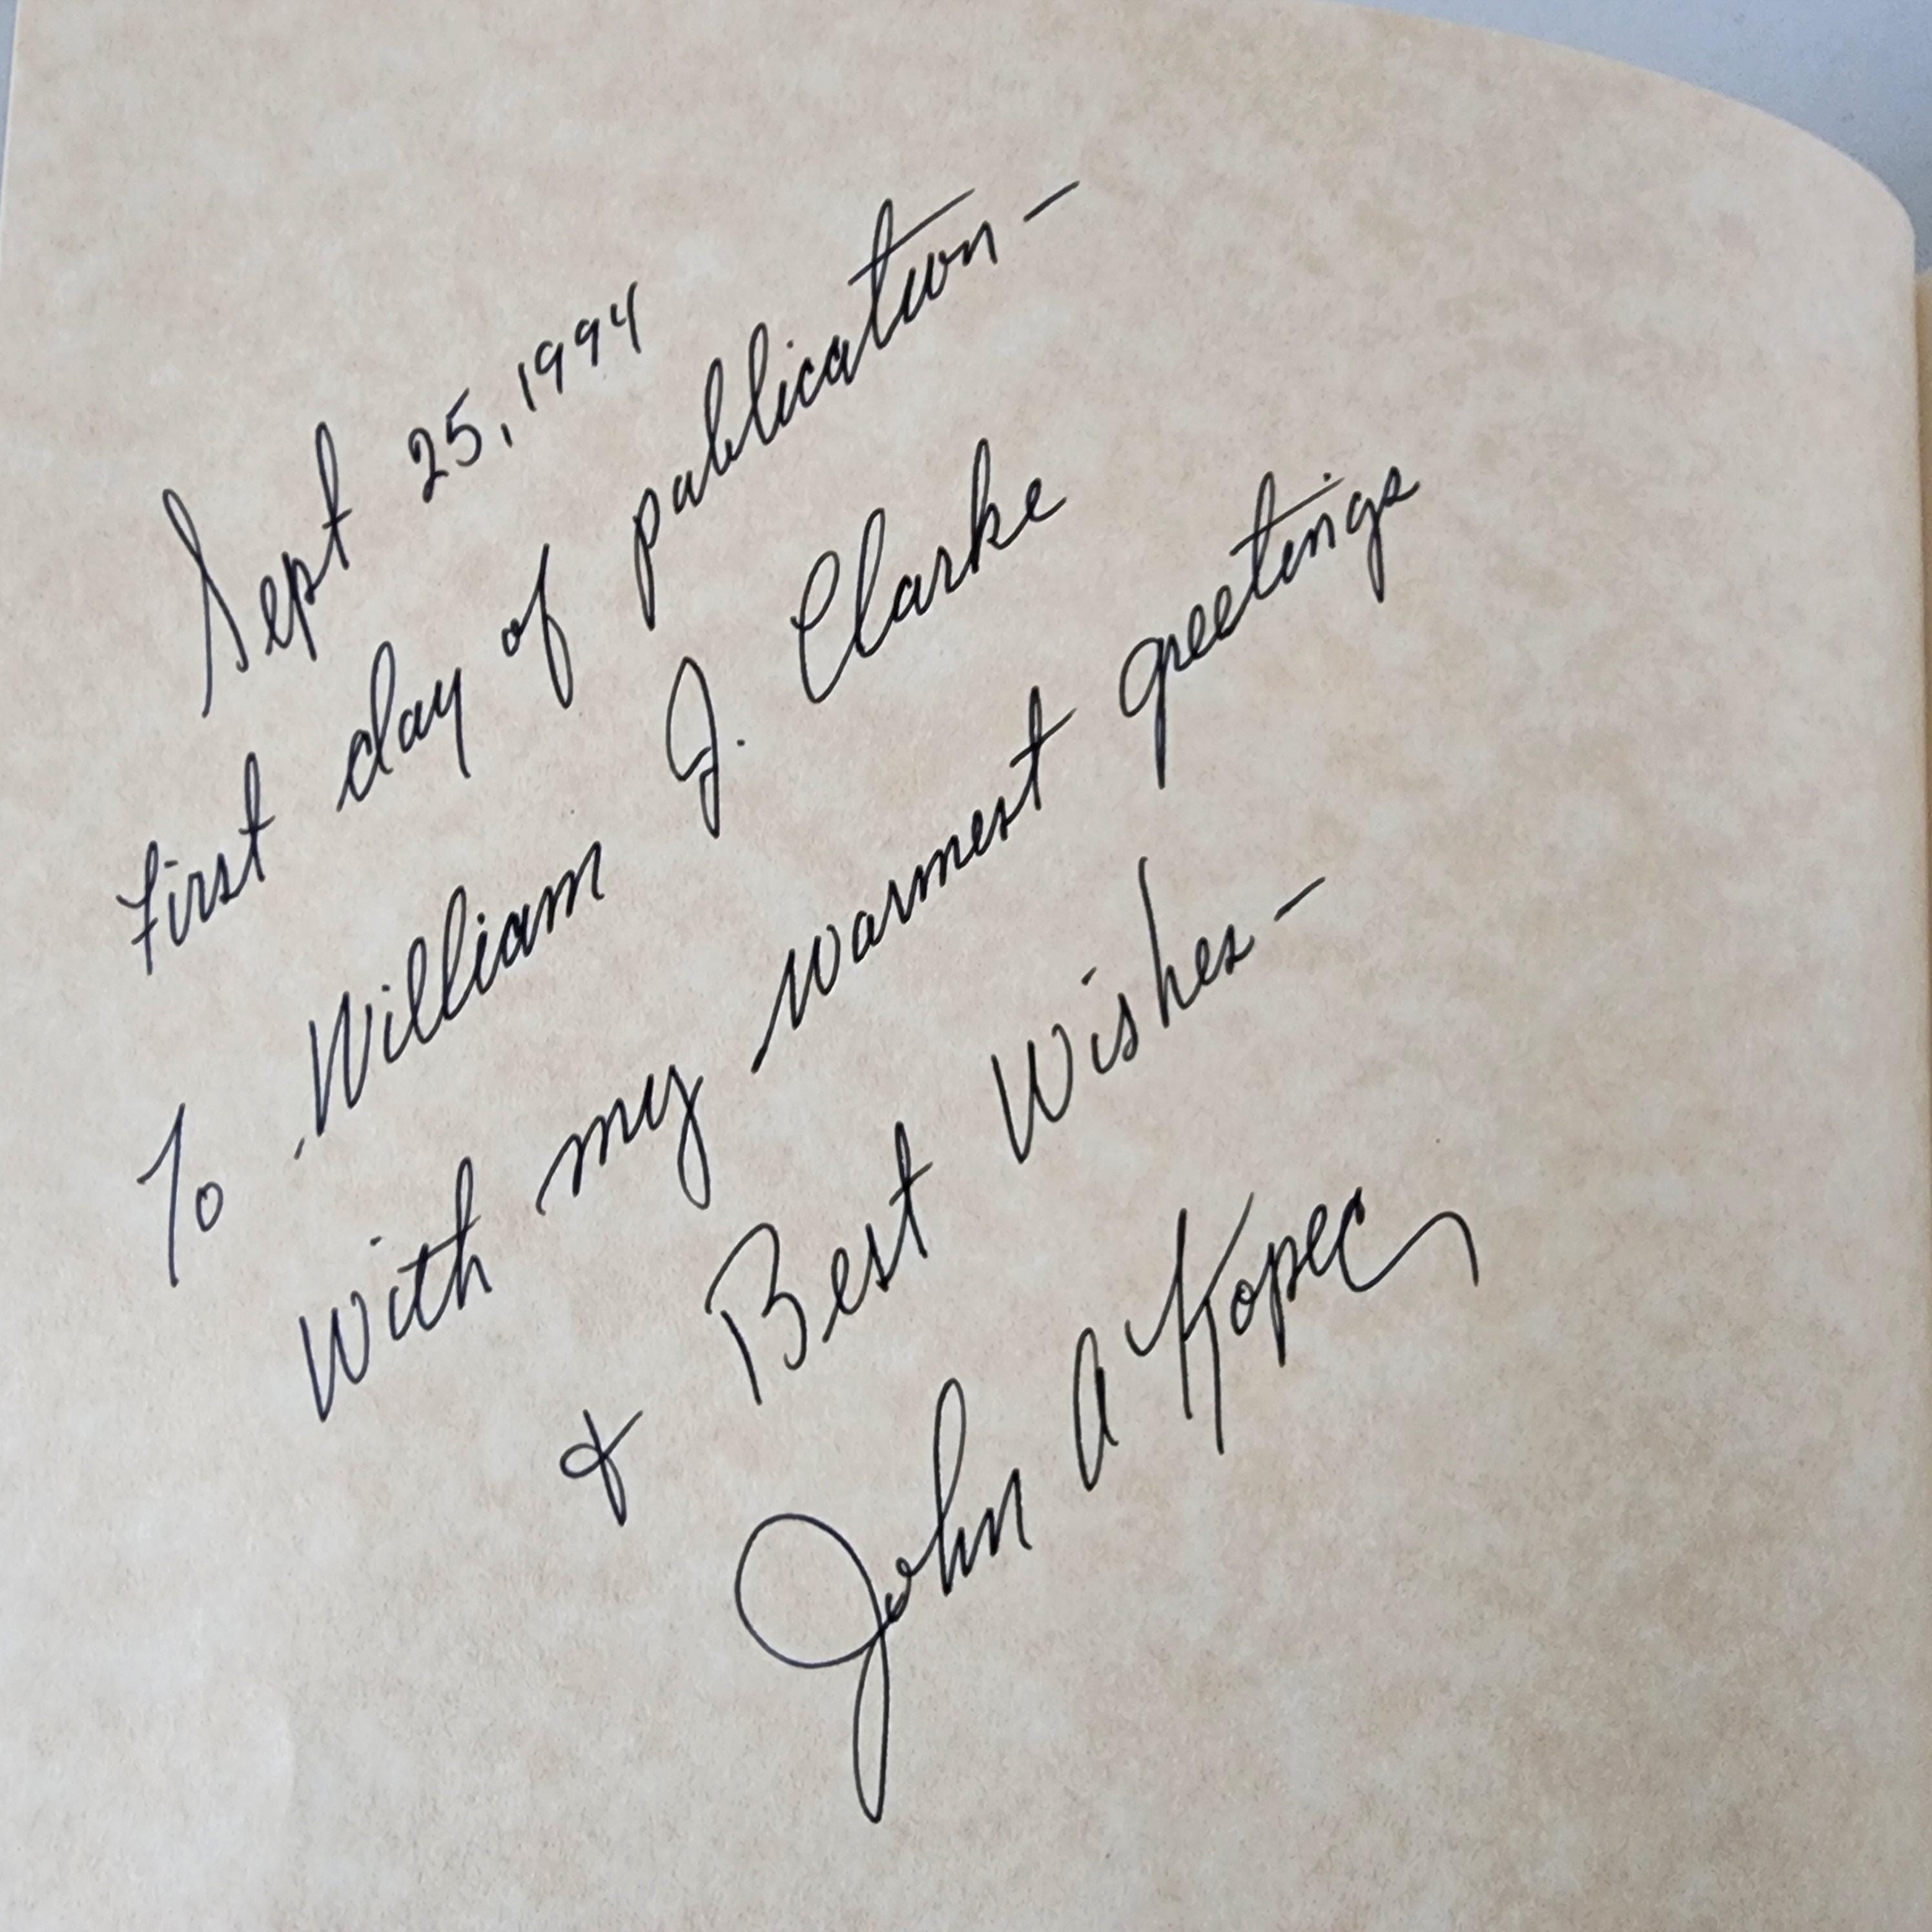 Sept 25, 1994
First day of publication -
To William J. Clarke
With my warmest greetings
& Best Wishes -
John A Kopec